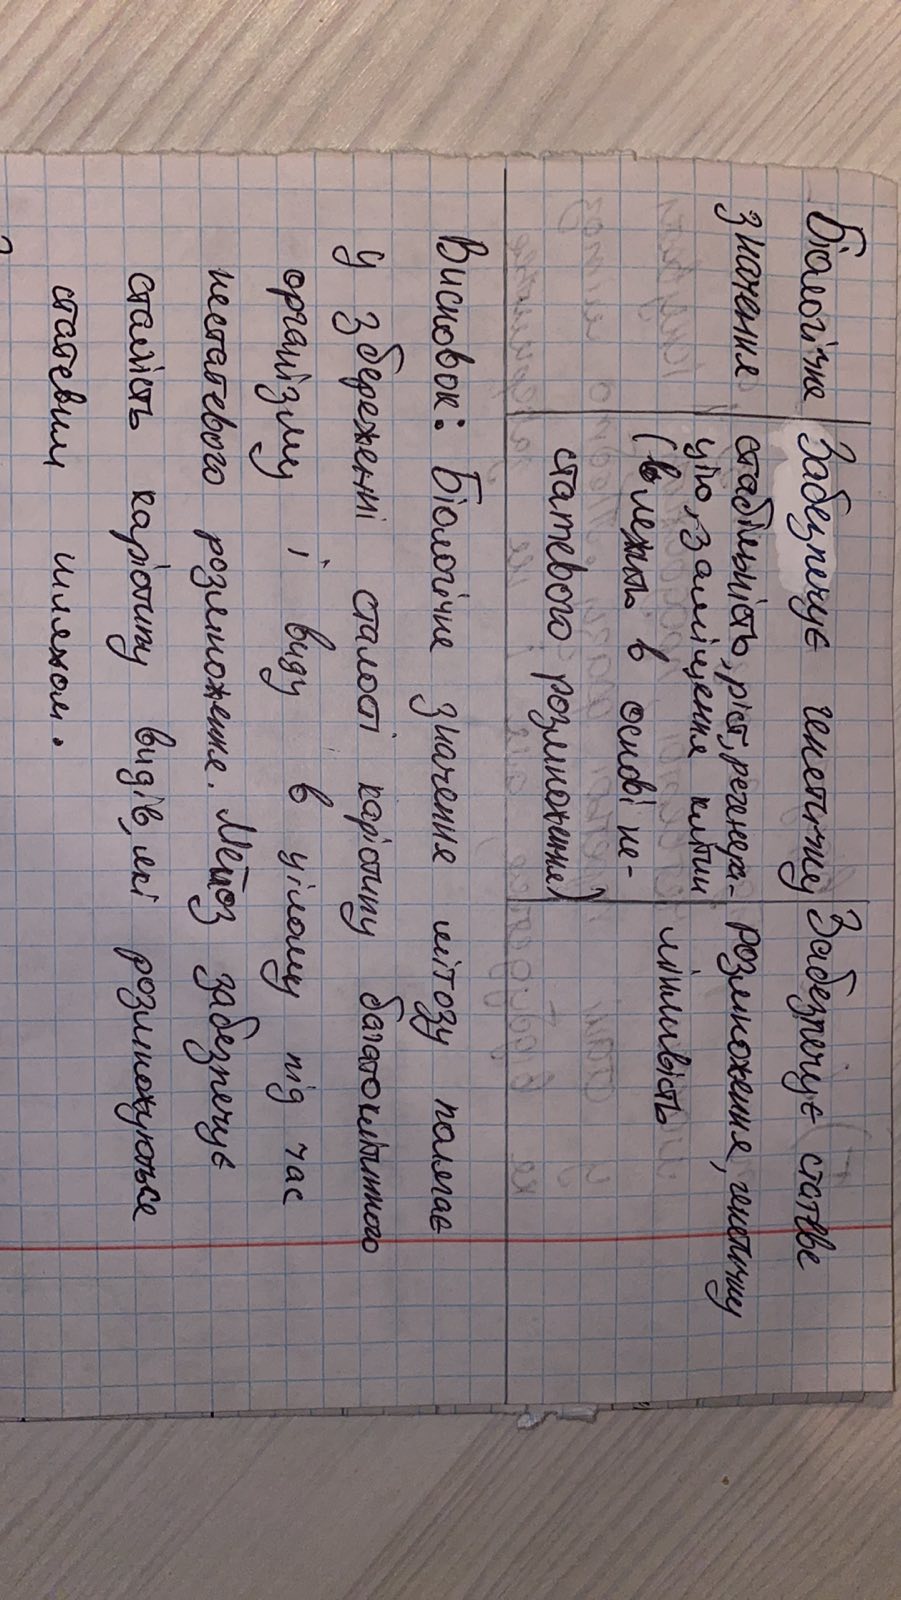 Біологічне
значення
Забезпечує генетичну
стабільність, ріст, регенера-
цію, заміщення клітин
(влежить в основі не-
статевого розмноження)
Забезпечує статеве
розмноження, генетичну
мінливість
Висновок: Біологічне значення мітозу полягає
у збереженні сталості каріотипу багатоклітинного
організму і виду в цілому під час
нестатевого розмноження. Мейоз забезпечує
сталість каріотипу видів, які розмножуються
статевим шляхом.